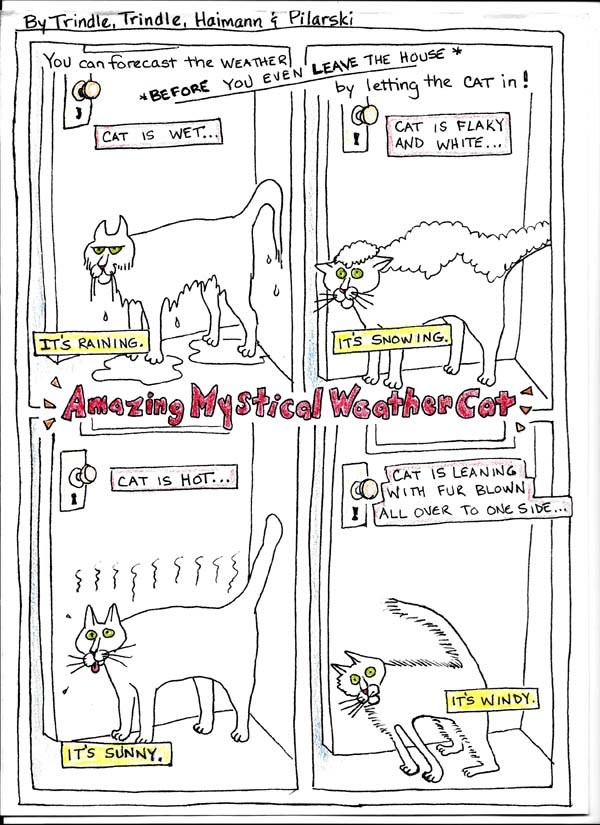 By Trindle, Trindle, Haimann & Pilarski
You can forecast the WEATHER
*BEFORE YOU EVEN LEAVE THE HOUSE*
by letting the CAT in!
CAT IS WET...
IT'S RAINING.
CAT IS FLAKY
AND WHITE...
IT'S SNOWING.
Amazing Mystical Weather Cat
CAT IS HOT...
IT'S SUNNY.
CAT IS LEANING
WITH FUR BLOWN
ALL OVER TO ONE SIDE...
IT'S WINDY.